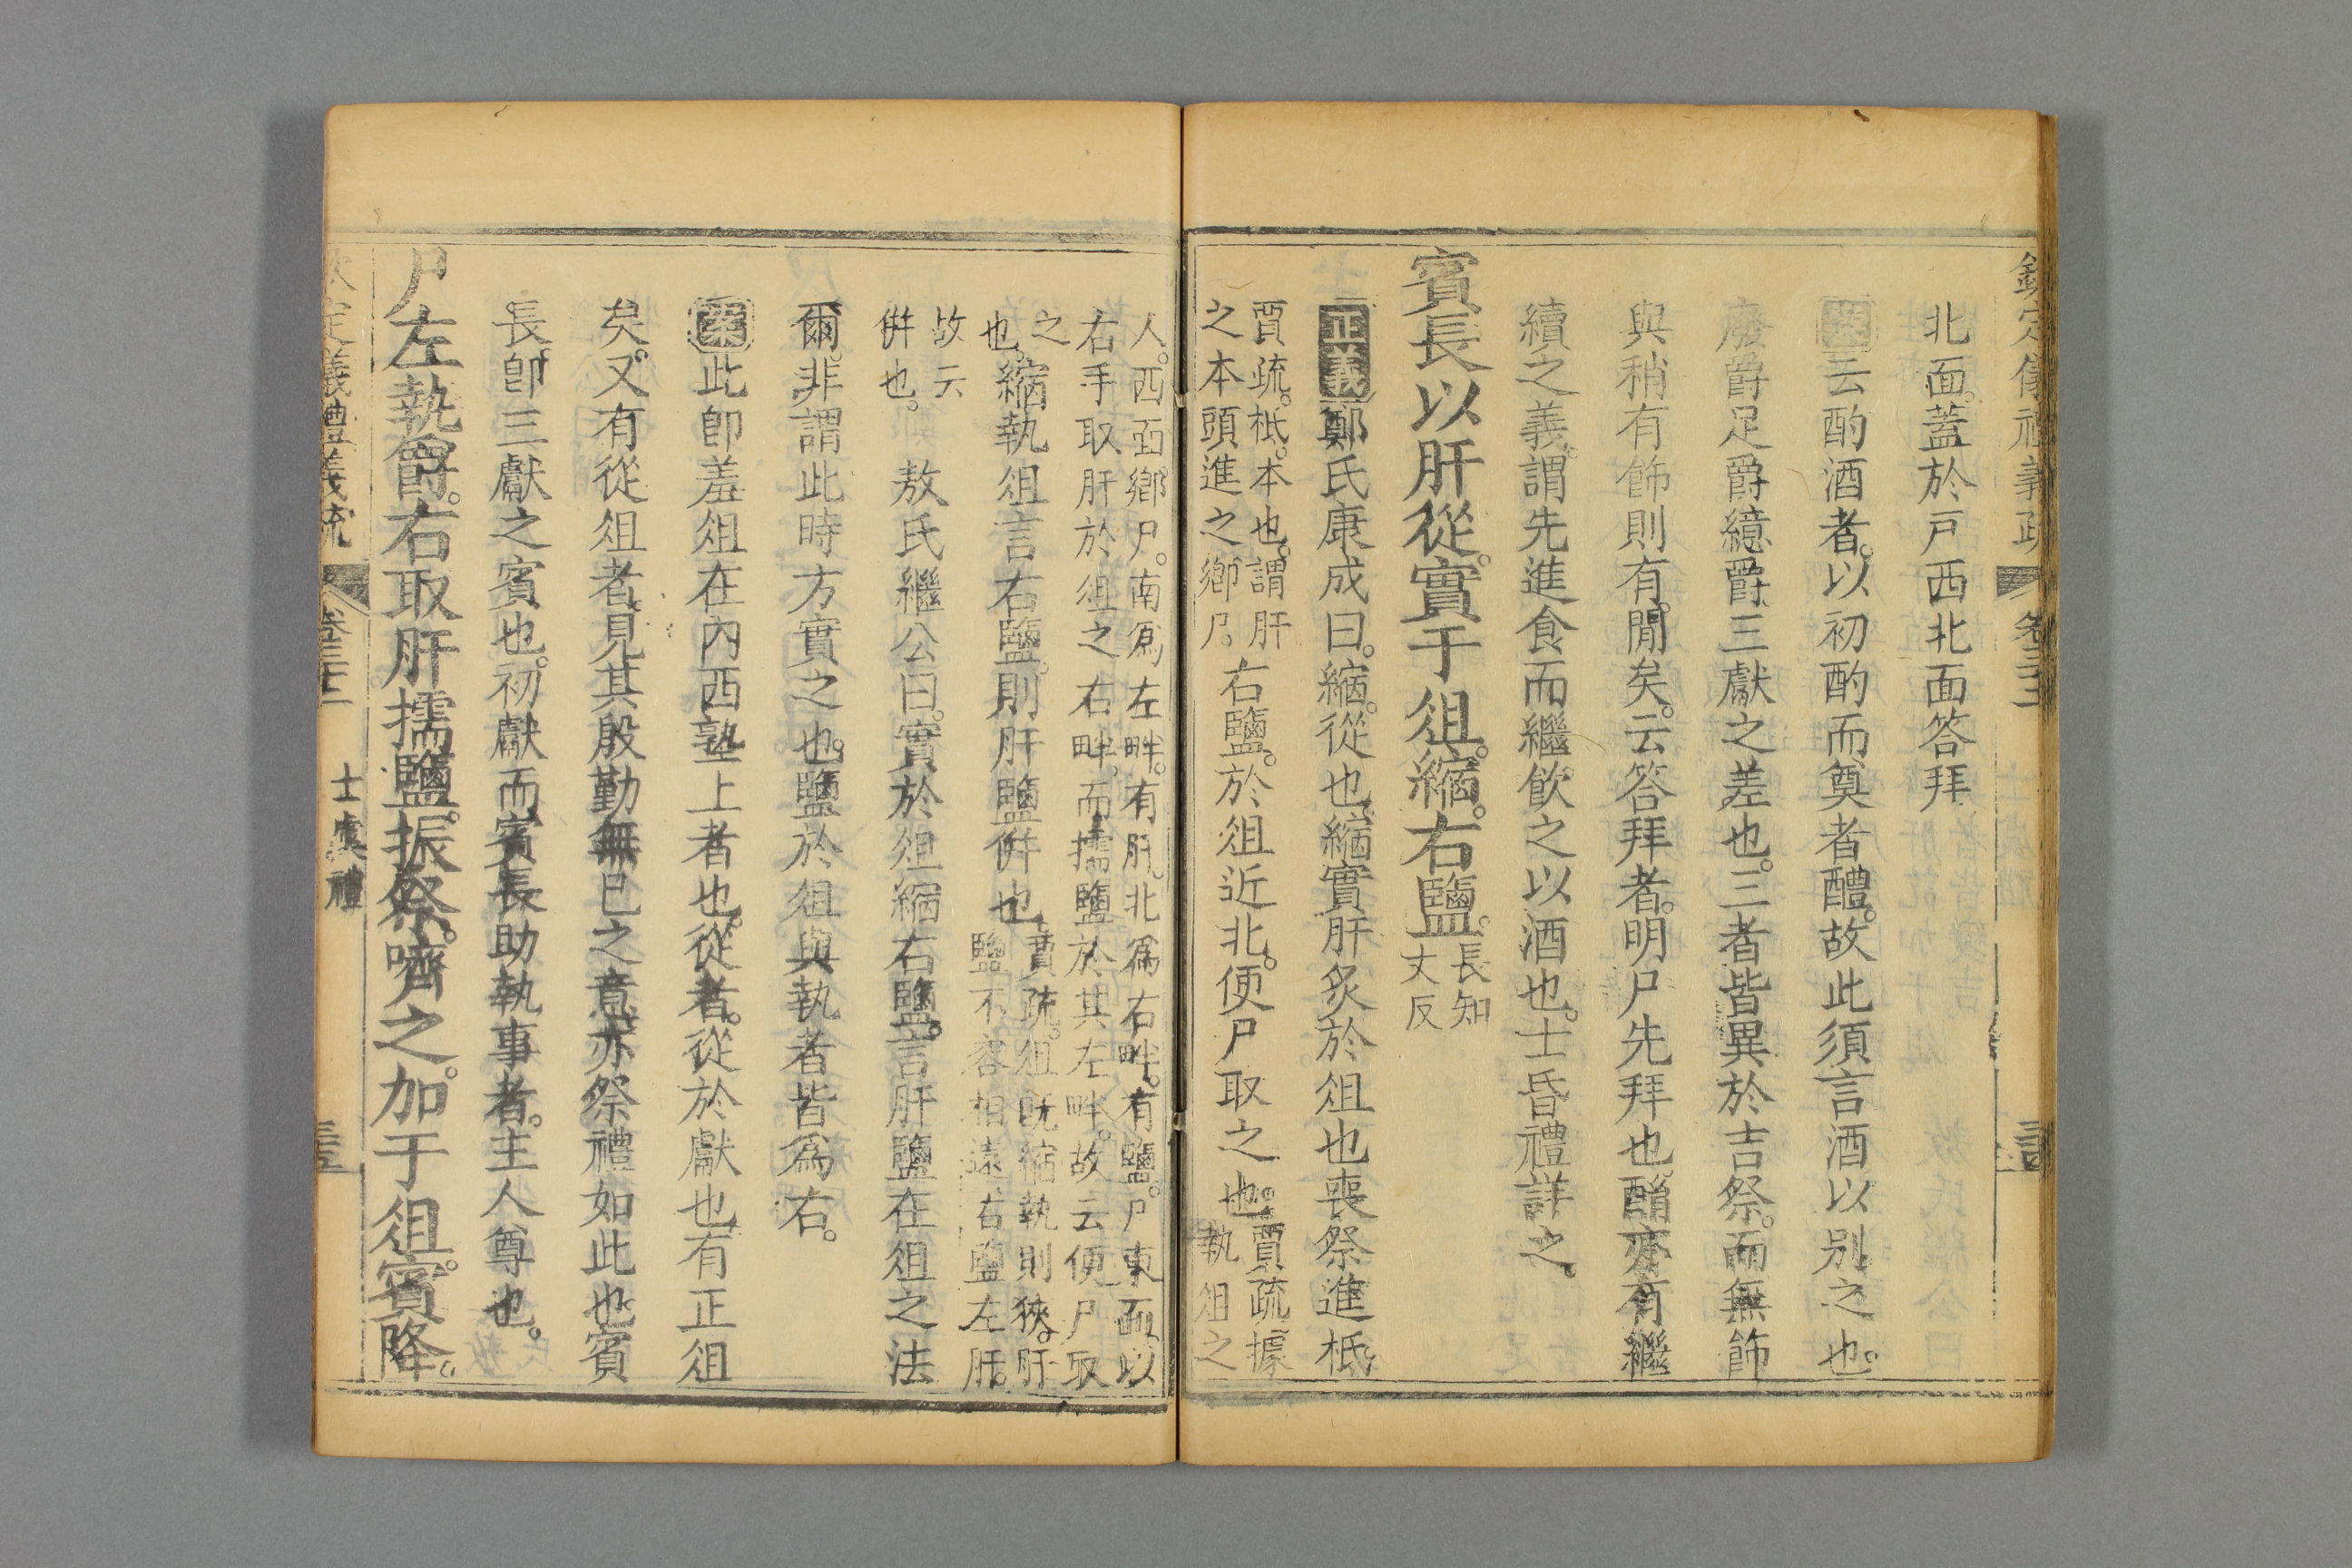 欽定儀禮義疏 卷三十二
北面。蓋於戸西北面答拜
案云酌酒者。以初酌而奠者醴。故此須言酒以別之也。
廢爵足爵繶爵三獻之差也。三者皆異於吉祭。而無飾
與稍有飾則有閒矣。云答拜者。明尸先拜也。酳亦有繼
續之義。謂先進食而繼飲之以酒也。士昏禮詳之。
賓長以肝從。實于俎。縮。右鹽。
長知
丈反
正義鄭氏康成曰。縮。從也。縮實肝炙於俎也喪祭進柢。
賈疏。柢。本也。謂肝
之本頭進之鄉尸。
右鹽。於俎近北。便尸取之也。
賈疏據
執俎之
人。西面鄉尸。南爲左畔。有肝。北爲右畔。有鹽。尸東面。以
右手取肝於俎之右畔。而擩鹽於其左畔。故云便尸取
之
也。
縮執俎言右鹽。則肝鹽併也。
賈疏。俎既縮執則狹。肝
鹽不容相遠。右鹽左肝。
故云
併也。
敖氏繼公曰。實於俎縮右鹽。言肝鹽在俎之法
爾。非謂此時方實之也。鹽於俎與執者皆爲右。
案此卽羞俎在內西塾上者也。從者。從於獻也。有正俎
矣。又有從俎者。見其殷勤無已之意。亦祭禮如此也。賓
長。卽三獻之賓也。初獻而賓長助執事者。主人尊也。
尸左執爵。右取肝擩鹽。振祭。嚌之。加于俎。賓降。
欽定儀禮義疏 卷三十二 士虞禮